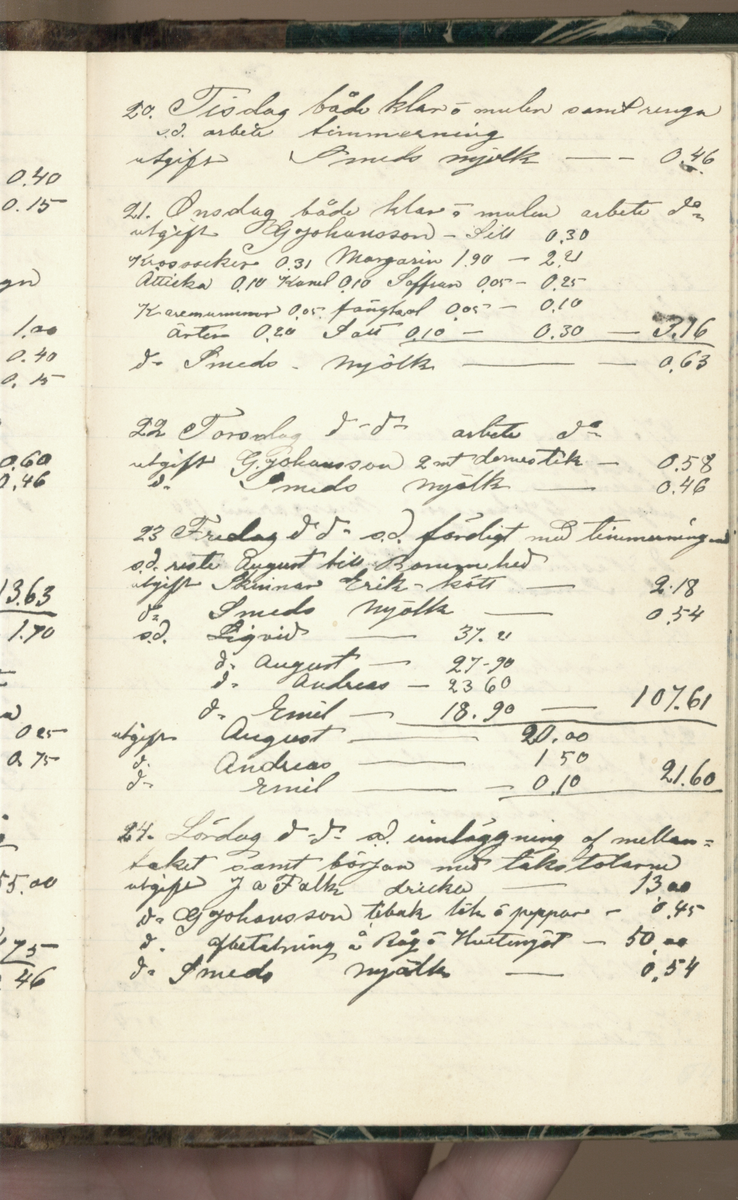 0.40
0.15
gn
1.00
0.40
0.15
0.60
0.46
13.63
1.70
0.25
0.75
55.00
75
46
20. Tisdag både klar o mulen samt regn
s.d. arbete timmerning
utgift Smeds mjölk — — 0.46
21. Onsdag både klar o mulen arbete do
utgift G Johansson - Sill 0.30
Krossocker 0.31 Margarin 1.90 - 2.21
Ätticka 0.10 Kanel 0.10 Saffran 0.05 - 0.25
Karemummor 0.05 0.05 - 0.10
Ärter 0.20 Salt 0.10 - 0.30 - 3.16
do Smeds - Mjölk — — 0.63
22 Torsdag do do arbete do
utgift G. Johansson 2 mt domestik — 0.58
do Smeds mjölk — 0.46
23 Fredag do do s.d. färdigt med timmerning
s.d. reste August till
utgift Skinnar Erik - kött — 2.18
do Smeds Mjölk — 0.54
s.d. Ligvid — 37.21
do August — 27-90
do Andreas — 23 60
do Emil — 18.90 — 107.61
utgift August — 20.00
do Andreas — 1 50
do Emil — 0.10 21.60
24. Lördag do do s.d. innläggning af mellan=
taket samt början med takstolarne
utgift J a Falk dricka — 13 00
do G Johansson tobak lök o peppar - 0.45
do afbetalning å Råg o — 50.00
do Smeds mjölk — 0.54